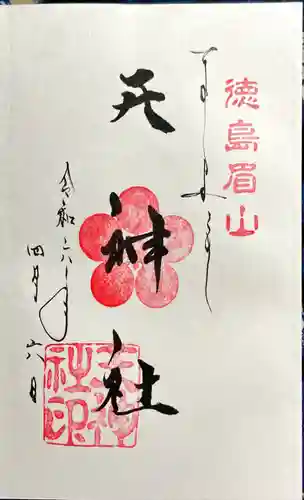 徳島眉山
天神社
令和六年
四月六日
天神社印